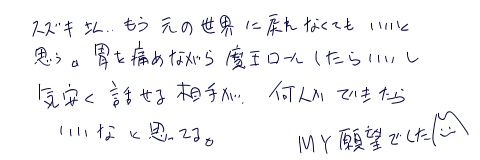 スズキさん、、もう元の世界に戻れなくてもいいと
思う。胃を痛めながら魔王ロールしたらいいし
気安く話せる相手が、何人かできたら
いいなと思ってる。
MY願望でした